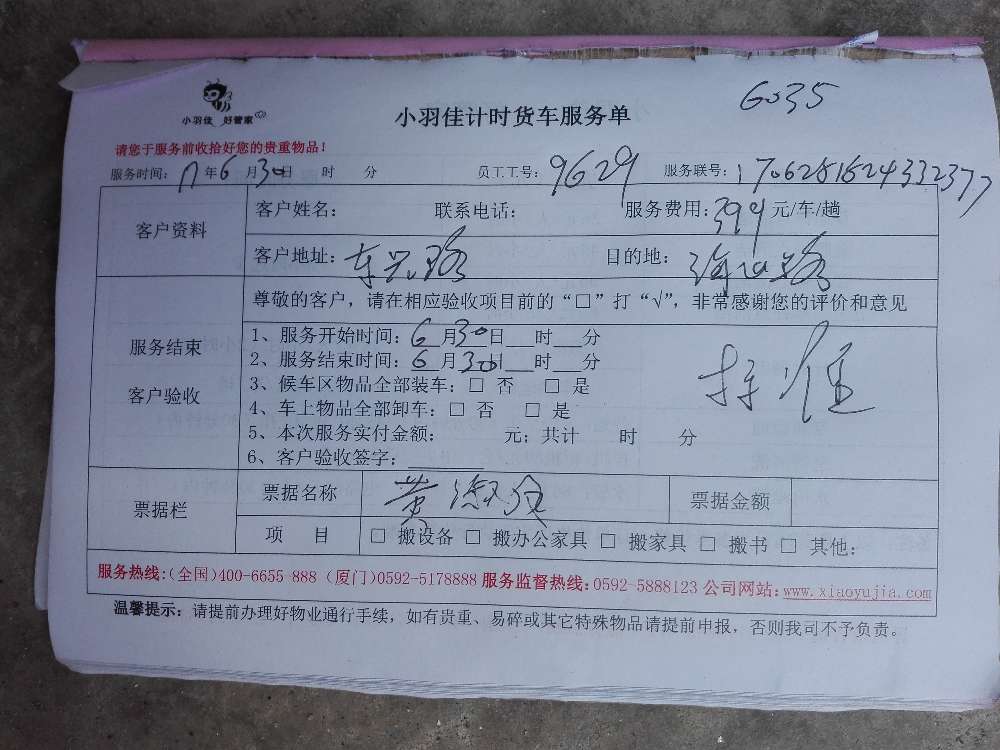 6035
小羽佳 好管家
小羽佳计时货车服务单
请您于服务前收拾好您的贵重物品！
服务时间：17年6月30日 时 分 员工工号：9629 服务联号：170628162433237
客户资料
客户姓名： 联系电话： 服务费用：394元/车/趟
客户地址：东兴路 目的地：
服务结束
客户验收
尊敬的客户，请在相应验收项目前的“□”打“√”，非常感谢您的评价和意见
1、服务开始时间：6月30日___时___分
2、服务结束时间：6月30日___时___分
3、候车区物品全部装车：□ 否 □ 是
4、车上物品全部卸车：□ 否 □ 是
5、本次服务实付金额： 元；共计 时 分
6、客户验收签字：
票据栏
票据名称 黄 票据金额
项 目 □ 搬设备 □ 搬办公家具 □ 搬家具 □ 搬书 □ 其他：
服务热线：(全国)400-6655-888 (厦门)0592-5178888 服务监督热线：0592-5888123 公司网站：www.xiaoyujia.com
温馨提示：请提前办理好物业通行手续，如有贵重、易碎或其它特殊物品请提前申报，否则我司不予负责。